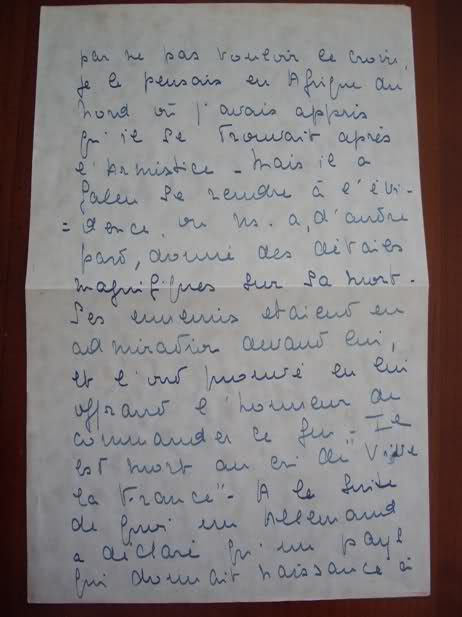 par ne pas vouloir le croire,
je le pensais en Afrique du
Nord où j'avais appris
qu'il se trouvait après
l'Armistice - Mais il a
fallu se rendre à l'évi-
= dence, on ns. a, d'autre
part, donné des détails
magnifiques sur sa mort.
Ses ennemis etaient en
admiration devant lui,
et l'ont prouvé en lui
offrant l'honneur de
commander le feu - Il
est mort au cri de "Vive
la France" - A la suite
de quoi un Allemand
a déclaré qu'un pays
qui donnait naissance à